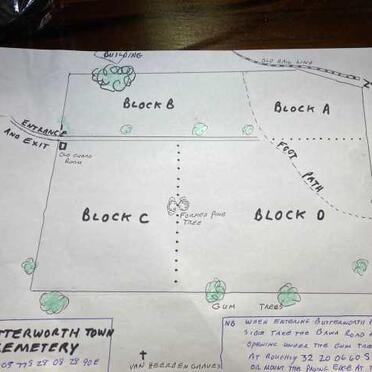 BUILDING
OLD RAIL LINE
BLOCK B
BLOCK A
ENTRANCE
AND EXIT
OLD GUARD
ROOM
FOOT
PATH
BLOCK C
FORMER PINE
TREE
BLOCK D
GUM TREES
TTERWORTH TOWN
EMETERY
28 08 28.90E
VAN HEERDEN GRAVES
NB WHEN ENTERING BUTTERWORTH
SIDE TAKE THE BAWA ROAD
OPENING UNDER THE GUM TREE
AT ROUGHLY 32 20 06.60 S
OR MOUNT THE PAVING EDGE AT T